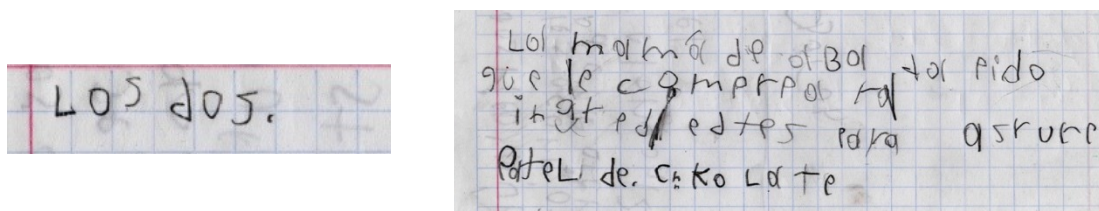 Los dos.
La mamá de aBa ta pido
que le comprera ra
ingredientes para asrure
PateL de. CħKoLate